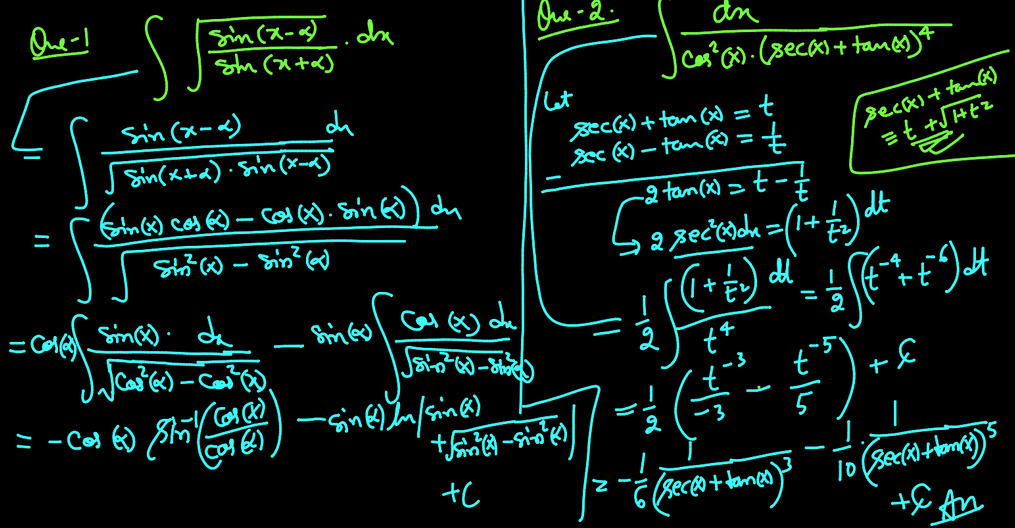 Que-1 ∫ √(sin(x-α)/sin(x+α)) . dx
= ∫ sin(x-α) dx / √(sin(x+α) . sin(x-α))
= ∫ (sin(x) cos(α) - cos(x) . sin(α)) dx / √(sin²(x) - sin²(α))
= cos(α) ∫ sin(x) . dx / √(cos²(α) - cos²(x)) - sin(α) ∫ cos(x) dx / √(sin²(x) - sin²(α))
= - cos(α) sin⁻¹(cos(x)/cos(α)) - sin(α) ln|sin(x)
+ √(sin²(x) - sin²(α))|
+ C
Que-2. ∫ dx / (cos²(x) . (sec(x) + tan(x))⁴)
Let
sec(x) + tan(x) = t
sec(x) - tan(x) = 1/t
-
2 tan(x) = t - 1/t
2 sec²(x) dx = (1 + 1/t²) dt
sec(x) + tan(x)
= t + √1+t²
= 1/2 ∫ (1 + 1/t²) dt / t⁴ = 1/2 ∫ (t⁻⁴ + t⁻⁶) dt
= 1/2 (t⁻³/-3 - t⁻⁵/5) + C
= - 1/6 1/(sec(x) + tan(x))³ - 1/10 . 1/(sec(x) + tan(x))⁵
+ C An